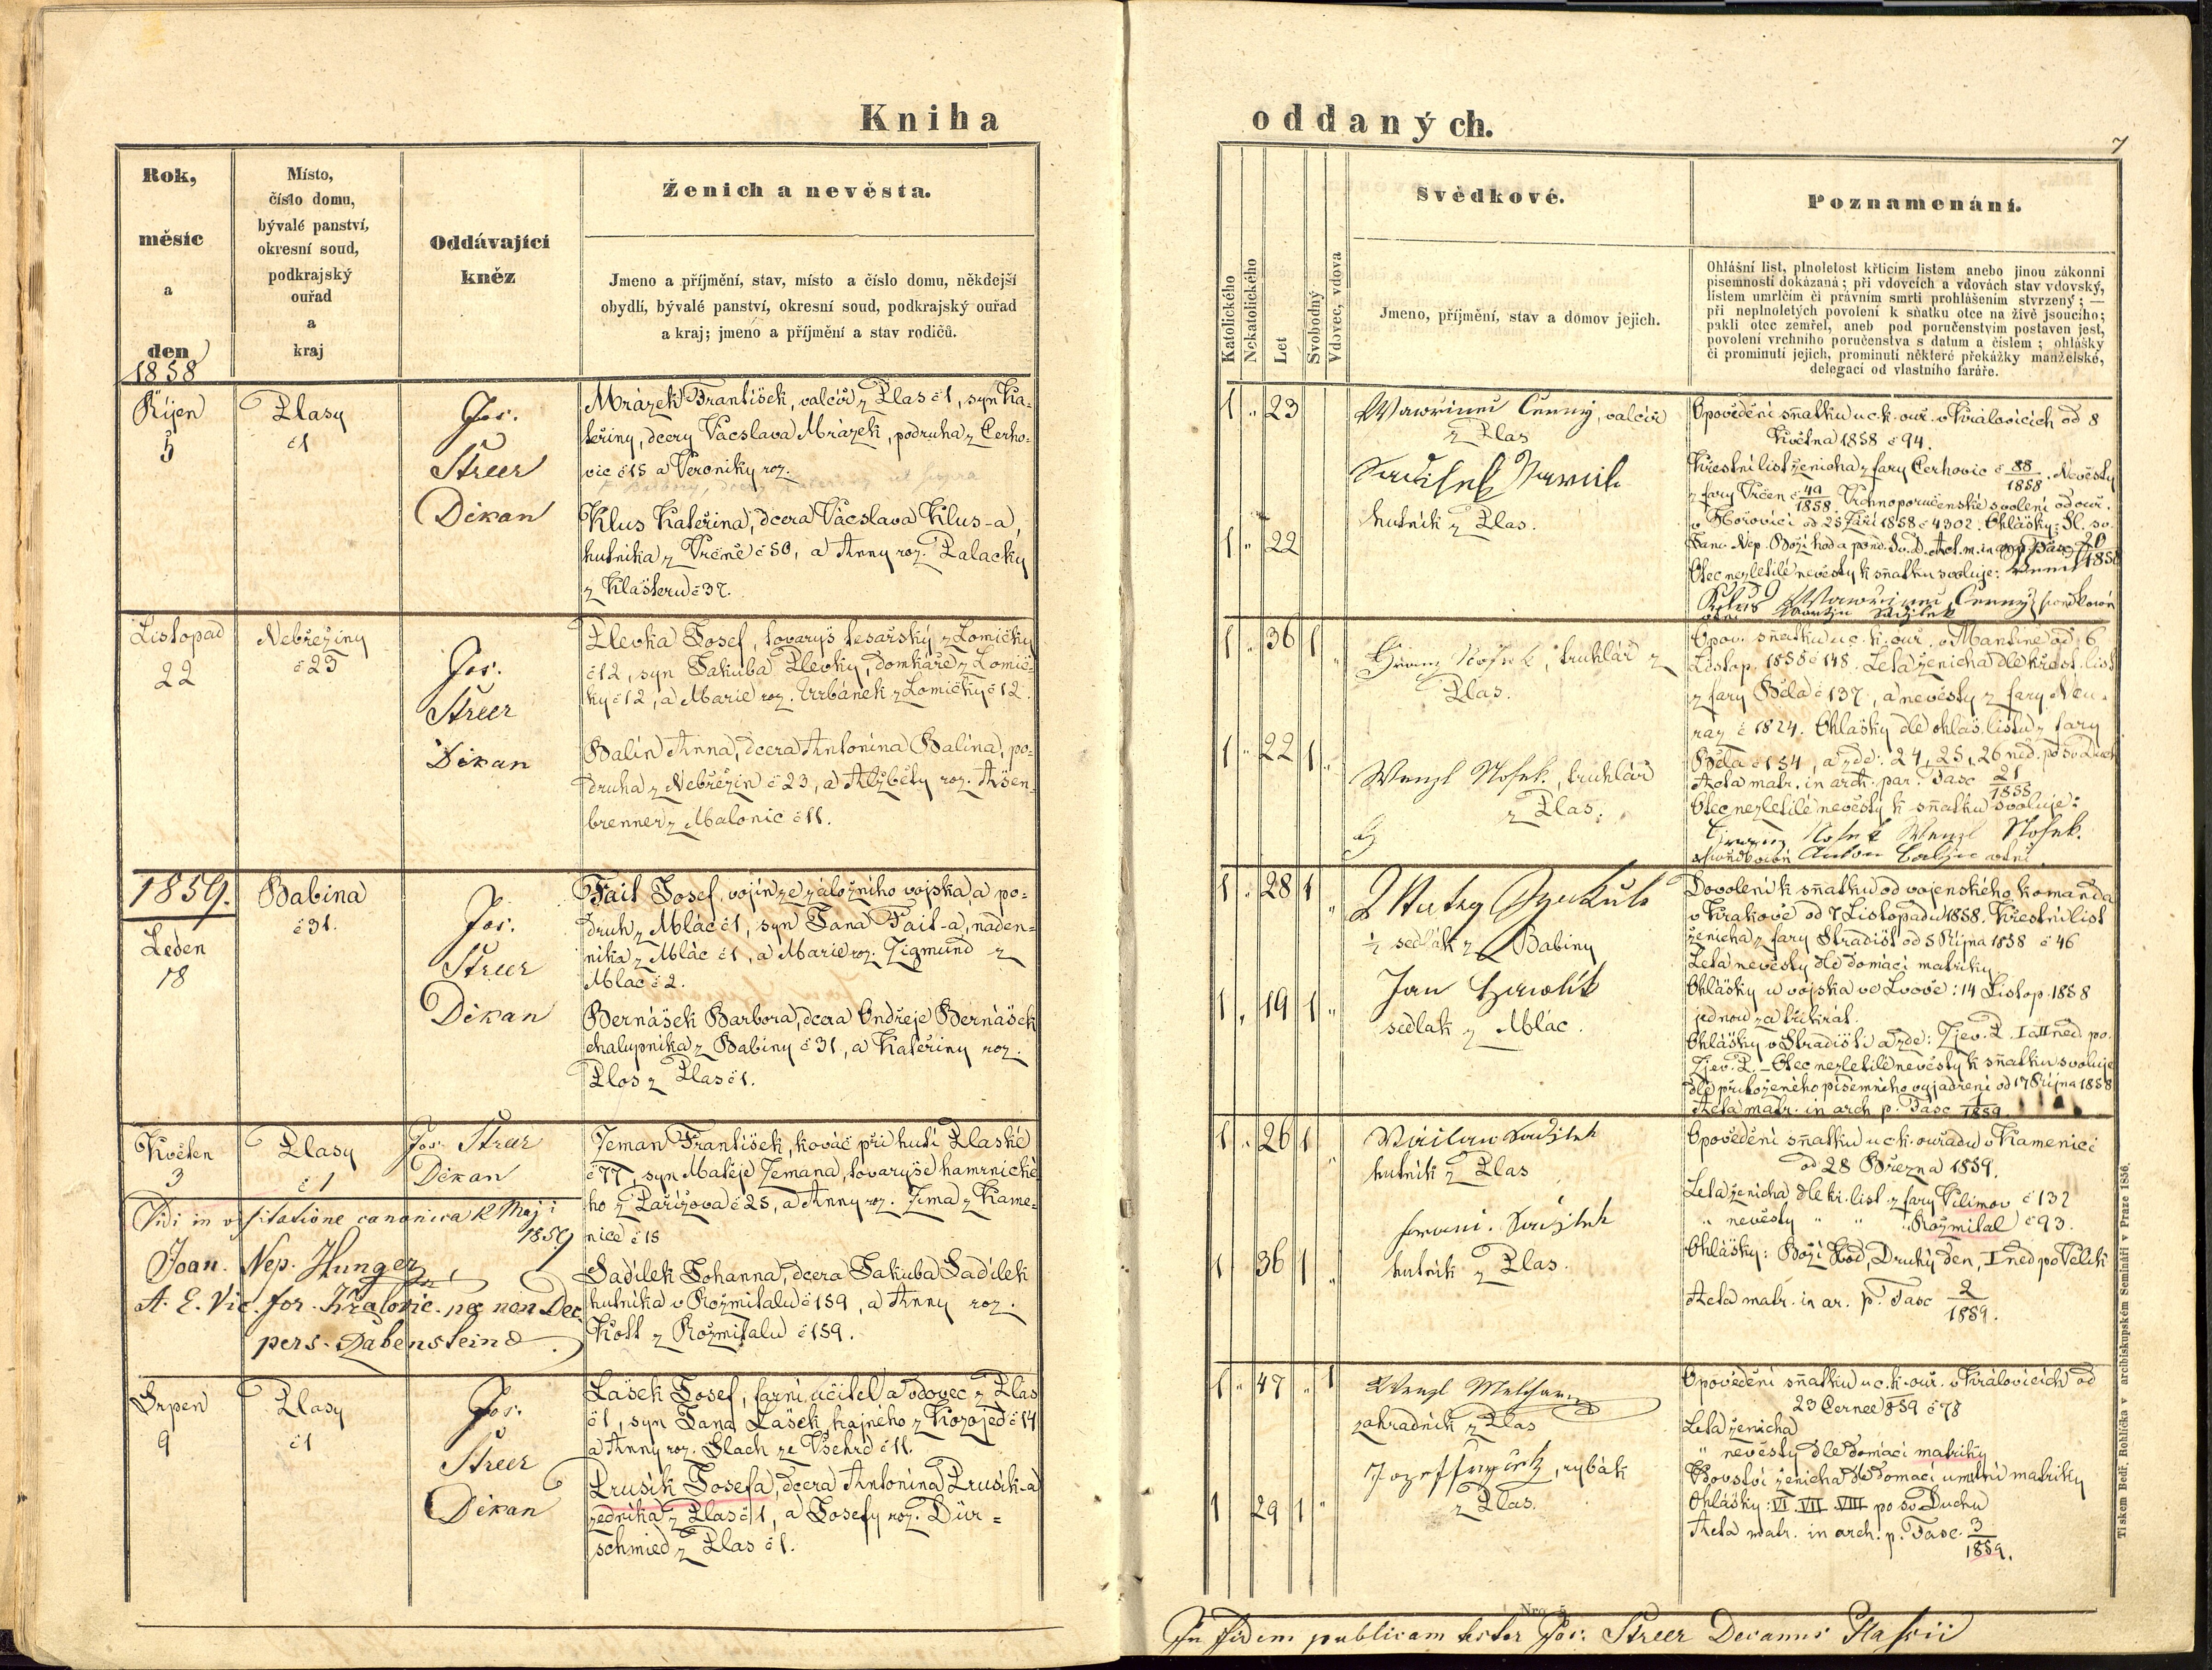 Kniha
oddaných.
7
Rok,
měsíc
a
den
1858
Místo,
číslo domu,
bývalé panství,
okresní soud,
podkrajský
ouřad
a
kraj
Oddávající
kněz
Ženich a nevěsta.
Jmeno a příjmění, stav, místo a číslo domu, někdejší
obydlí, bývalé panství, okresní soud, podkrajský ouřad
a kraj; jmeno a příjmění a stav rodičů.
Katolického
Nekatolického
Let
Svobodný
Vdovec, vdova
Svědkové.
Jmeno, příjmění, stav a domov jejich.
Poznamenání.
Ohlášní list, plnoletost křticím listem anebo jinou zákonni
písemností dokázaná; při vdovcích a vdovách stav vdovský,
listem umrlčím či právním smrti prohlášením stvrzený; —
při neplnoletých povolení k sňatku otce na živě jsoucího;
pakli otec zemřel, aneb pod poručenstvím postaven jest,
povolení vrchního poručenstva s datum a číslem; ohlášky
či prominutí jejich, prominutí některé překážky manželské,
delegací od vlastního faráře.
Říjen
5
Plasy
č 1
Jos.
Streer
Děkan
Mrázek František, valcíř z Plas č 1, syn Ka-
teřiny, dcery Vácslava Mrázek, podruha z Cerho-
vic č 15 a Veroniky roz.
Klus Kateřina, dcera Vácslava Klus-a,
hutníka z Vrčně č 50, a Anny roz. Palacky
z Klášteru č 37.
1 " 23
1 " 22
Wawřinec Černý, valcíř
z Plas
hutník z Plas.
Opovědění sňatku u c. k. ouř. v Královicích od 8
Května 1858 č 94.
Křestní list ženicha z fary Cerhovic č 88/1858. Nevěsty
z fary Vrčen č 49/1858. Vrchnoporučenské svolení od ouř.
v Hořovici od 25 Září 1858 č 4302. Ohlášky: Sl. sv.
Otec nezletilé nevěsty k sňatku svoluje:
Klus Wawřinec Černý
Listopad
22
Nebřeziny
č 23
Jos.
Streer
Děkan
Plevka Josef, tovaryš tesařský z Lomičky
č 12, syn Jakuba Plevky, domkáře z Lomič-
ky č 12, a Marie roz. Urbánek z Lomičky č 12.
Balín Anna, dcera Antonína Balína, po-
druha z Nebřezin č 23, a Alžběty roz. Ašen-
brenner z Malonic č 11.
1 " 36 1 "
1 " 22 1 "
truhlář z
Plas.
Wenzl Nosek, truhlář
z Plas.
Opov. sňatku u c. k. ouř. v Mantíně od 6
Listop. 1858 č 148. Leta ženicha dle křest. list
z fary Bělá č 137, a nevěsty z fary Neu-
raz č 1824. Ohlašky dle ohlaš. listu z fary
Bělá č 154, a zde: 24, 25, 26 ned. po sv. Duch
Acta matr. in arch. par. Fasc 21/1858
Otec nezletilé nevěsty k sňatku svoluje:
Nosek Wenzl Nosek.
1859.
Leden
18
Babina
č 31.
Jos.
Streer
Děkan
Fait Josef, vojín ze záložního vojska, a po-
druh z Mlác č 1, syn Jana Fait-a, náden-
níka z Mlác č 1, a Marie roz. Zigmund z
Mlác č 2.
Bernášek Barbora, dcera Ondřeje Bernášek
chalupníka z Babiny č 31, a Kateřiny roz.
Plos z Plas č 1.
1 " 28 1 "
1 " 19 1 "
½ sedlák z Babiny
Jan Hawlik
sedlak z Mlác.
Dovolení k sňatku od vojenského komanda
v Krakově od 7 Listopadu 1858. Křestní list
ženicha z fary Hradišt od 5 Října 1858 č 46
Leta nevěsty dle domácí matriky
Ohlášky u vojska ve Lvově: 14 Listop. 1858
jednou za třikrát.
Ohlášky v Hradišti a zde: Zjev. P. I a II ned. po
Zjev. P. – Otec nezletilé nevěsty k sňatku svoluje
dle přiloženého písemního vyjadření od 17 Října 1858
Acta matr. in arch. p. Fasc 1/1859.
Květen
3
Plasy
č 1
Jos. Streer
Děkan
Vidi in visitatione canonica 12 Maji
1859
Joan. Nep. Hunger
A. E. Vic. for. Kralovic.
pers. Dabenstein
Zeman František, kovář při huti Plaské
č 77, syn Matěje Zemana, tovaryše hamrnické-
ho z Pařížova č 25, a Anny roz. Zima z Kame-
nice č 15
Sadílek Johanna, dcera Jakuba Sadílek
hutníka v Rožmitalu č 159, a Anny roz.
Kott z Rožmitalu č 159.
1 " 26 1 "
1 36 1 "
Václaw Sadjlek
hutník z Plas
Sadjlek
hutník z Plas.
Opovědění sňatku u c. k. ouřadu v Kamenici
od 28 Března 1859.
Leta ženicha dle kř. list. z fary Vilimov č 132
" nevěsty " " " Rožmital č 93.
Ohlášky: Boží Hod, Druhý den, I ned po Velik
Acta matr. in ar. p. Fasc 2/1859.
Srpen
9
Plasy
č 1
Jos.
Streer
Děkan
Lašek Josef, farní učitel a vdovec z Plas
č 1, syn Jana Lašek, hajného z Kozojed č 14
a Anny roz. Slach ze Všehrd č 11.
Prusík Josefa, dcera Antonína Prusík-a
zedníka z Plas č 1, a Josefy roz. Dür-
schmied z Plas č 1.
1 " 47 " 1
1 29 1 "
Wenzl
zahradník z Plas
Jozef, rybák
z Plas.
Opovědění sňatku u c. k. ouř. v Královicích od
23 Černce 859 č 78
Leta ženicha
" nevěsty dle domácí matriky
Vdovství ženicha dle domácí umrlčí matriky
Ohlášky: VI. VII. VIII po sv Duchu
Acta matr. in arch. p. Fasc. 3/1859.
Nro. 5
Tiskem Bedř. Rohlíčka v arcibiskupském Semináři v Praze 1856.
In fidem publicam testor Jos. Streer Decanus Plassii